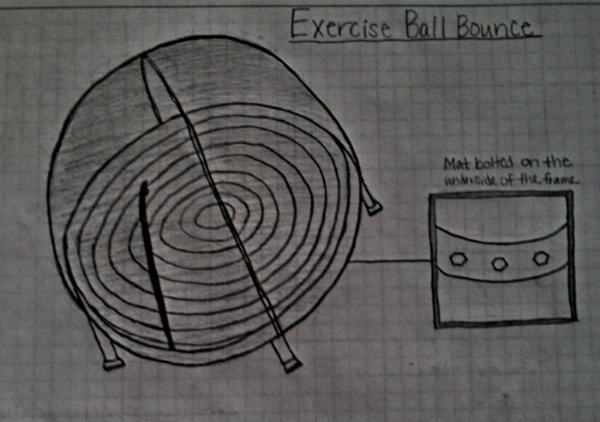 Exercise Ball Bounce
Mat bolted on the
underside of the frame